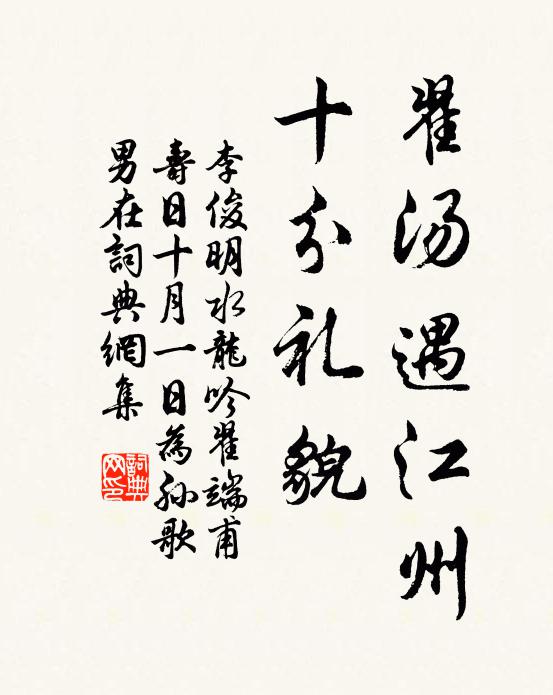 翟汤遇江州
十分礼貌
李俊明水龍吟翟端甫
壽日十月一日為孙歌
男在詞典網集
詞典网印